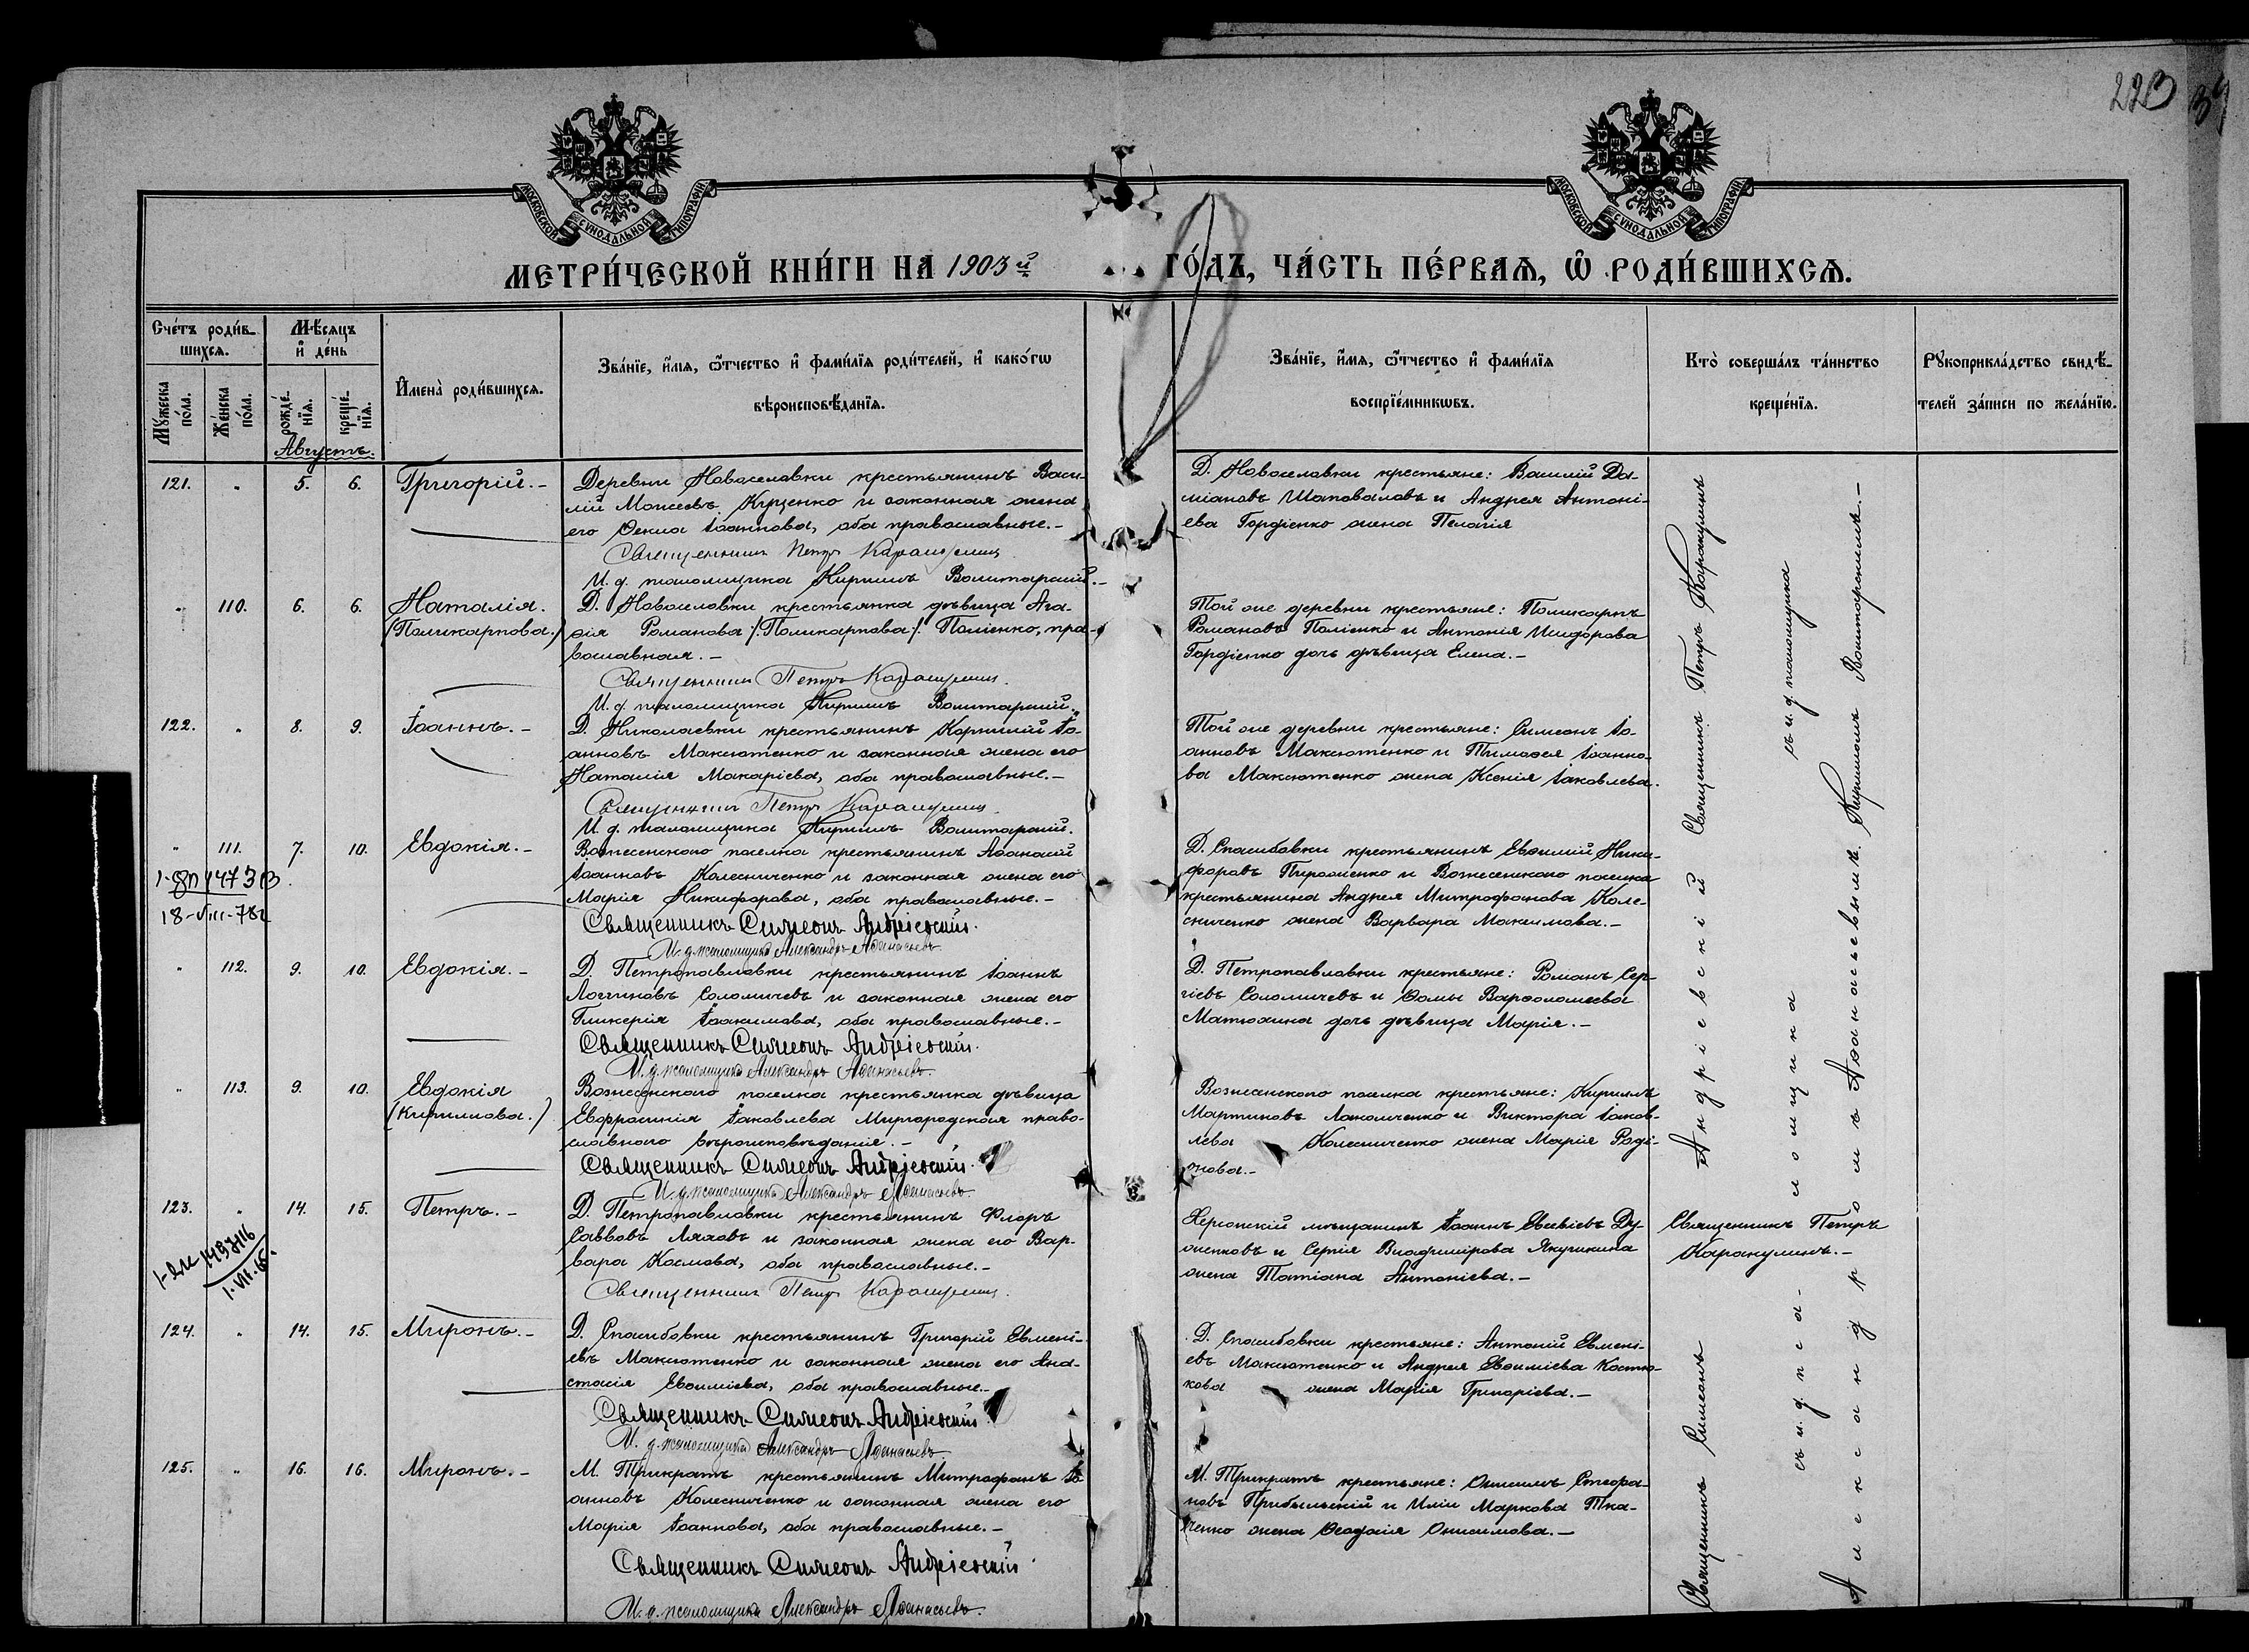 223
МОСКОВСКОЙ СУНОДАЛЬНОЙ ТИПОГРАФІИ.
МОСКОВСКОЙ СУНОДАЛЬНОЙ ТИПОГРАФІИ.
МЕТРИ́ЧЕСКОЙ КНИ́ГИ НА 1903й ГО́ДЪ, ЧА́СТЬ ПЕ́РВАѦ, Ѽ РОДИ́ВШИХСѦ.
Сче́тъ роди́в-
шихсѧ.
Мꙋжеска
по́ла.
Же́нска
по́ла.
Мѣ́сѧцъ
и҆ де́нь
рожде́-
нїѧ.
креще́-
нїѧ.
И҆мена̀ роди́вшихсѧ.
Зва́нїе, и҆́мѧ, ѻ҆́тчество и҆ фами́лїѧ роди́телей, и҆ како́гѡ
вѣроисповѣ́данїѧ.
Зва́нїе, и҆́мѧ, ѻ҆́тчество и҆ фами́лїѧ
воспрїе́мникѡвъ.
Кто̀ соверша́лъ та́инство
креще́нїѧ.
Рꙋкоприкла́дство свидѣ́-
телей за́писи по жела́нїю.
Августъ.
121. " 5. 6. Григорій.-
Деревни Новоселовки крестьянинъ Васи-
лій Моисеевъ Куценко и законная жена
его Ѳекла Іоаннова, оба православные.-
Священникъ Петръ Каракулинъ
И. д. псаломщика Кириллъ Волитарскій.-
Д. Новоселовки крестьяне: Василій Да-
міановъ Шаповаловъ и Андрея Антоні-
ева Гордіенко жена Пелагія
" 110. 6. 6. Наталія.
(Поликарпова.)
Д. Новоселовки крестьянка дѣвица Ага-
ѳія Романова /:Поликарпова:/ Поліенко, пра-
вославная.-
Священникъ Петръ Каракулинъ.
И. д. псаломщика Кириллъ Волитарскій.
Той же деревни крестьяне: Поликарпъ
Романовъ Поліенко и Антонія Исидорова
Гордіенко дочь дѣвица Елена.-
122. " 8. 9. Іоаннъ.-
Д. Николаевки крестьянинъ Корнилій Іо-
анновъ Максютенко и законная жена его
Наталія Макаріева, оба православные.-
Священникъ Петръ Каракулинъ
И. д. псаломщика Кириллъ Волитарскій.
Той же деревни крестьяне: Симеонъ Іо-
анновъ Максютенко и Тимоѳея Іоанно-
ва Максютенко жена Ксенія Іаковлева.
" 111. 7. 10. Евдокія.-
18-VIII-78г
Вознесенскаго поселка крестьянинъ Аѳанасій
Іоанновъ Колесниченко и законная жена его
Марія Никифорова, оба православные.-
Священникъ Симеонъ Андріевскій.
И. д. псаломщика Александръ Аѳанасьевъ
Д. Спасибовки крестьянинъ Евѳимій Ники-
форовъ Пироженко и Вознесенскаго поселка
крестьянина Андрея Митрофанова Коле-
сниченко жена Варвара Максимова.-
" 112. 9. 10. Евдокія.-
Д. Петропавловки крестьянинъ Іоаннъ
Логгиновъ Соломичевъ и законная жена его
Гликерія Іоакимова, оба православные.-
Священникъ Симеонъ Андріевскій.
И. д. псаломщика Александръ Аѳанасьевъ.
Д. Петропавловки крестьяне: Романъ Сер-
гіевъ Соломичевъ и Ѳомы Варѳоломеева
Матюхина дочь дѣвица Марія.-
" 113. 9. 10. Евдокія
(Кириллова.)
Вознесенскаго поселка крестьянка дѣвица
Евфросинія Іаковлева Миргородская право-
славнаго вѣроисповѣданія.-
Священникъ Симеонъ Андріевскій.
И. д. псаломщика Александръ Аѳанасьевъ.
Вознесенскаго поселка крестьяне: Кириллъ
Мартиновъ Лакомченко и Виктора Іаков-
лева Колесниченко жена Марія Роді-
онова.-
123. " 14. 15. Петръ.-
Д. Петропавловки крестьянинъ Флоръ
Саввовъ Ляховъ и законная жена его Вар-
вара Космова, оба православные.-
Священникъ Петръ Каракулинъ.
Херсонскій мѣщанинъ Іоаннъ Евсевіевъ Ду-
женковъ и Сергія Владимірова Якушкина
жена Татіана Антоніева.-
Священникъ Петръ
Каракулинъ.-
124. " 14. 15. Миронъ.-
Д. Спасибовки крестьянинъ Григорій Евмені-
евъ Максютенко и законная жена его Ана-
стасія Евѳиміева, оба православные.-
Священникъ Симеонъ Андріевскій
И. д. псаломщика Александръ Аѳанасьевъ
Д. Спасибовки крестьяне: Антоній Евмені-
евъ Максютенко и Андрея Евѳиміева Костю-
кова жена Марія Григоріева.-
125. " 16. 16. Миронъ.-
М. Трикратъ крестьянинъ Митрофанъ Іо-
анновъ Колесниченко и законная жена его
Марія Іоаннова, оба православные.-
Священникъ Симеонъ Андріевскій
И. д. псаломщика Александръ Аѳанасьевъ.
М. Трикратъ крестьяне: Онисимъ Стефа-
новъ Прибыльскій и Иліи Маркова Тка-
ченко жена Ѳеодосія Онисимова.-
Священникъ Петръ Каракулинъ
съ и. д. псаломщика
Кирилломъ Волитарскимъ.-
Священникъ Симеонъ Андріевскій
съ и. д. псаломщика
Александромъ Аѳанасьевымъ.